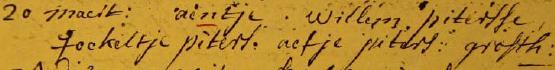 20 maert: aentje . Willem pitersse
Jockeltje piters. aefje piters: grosth: